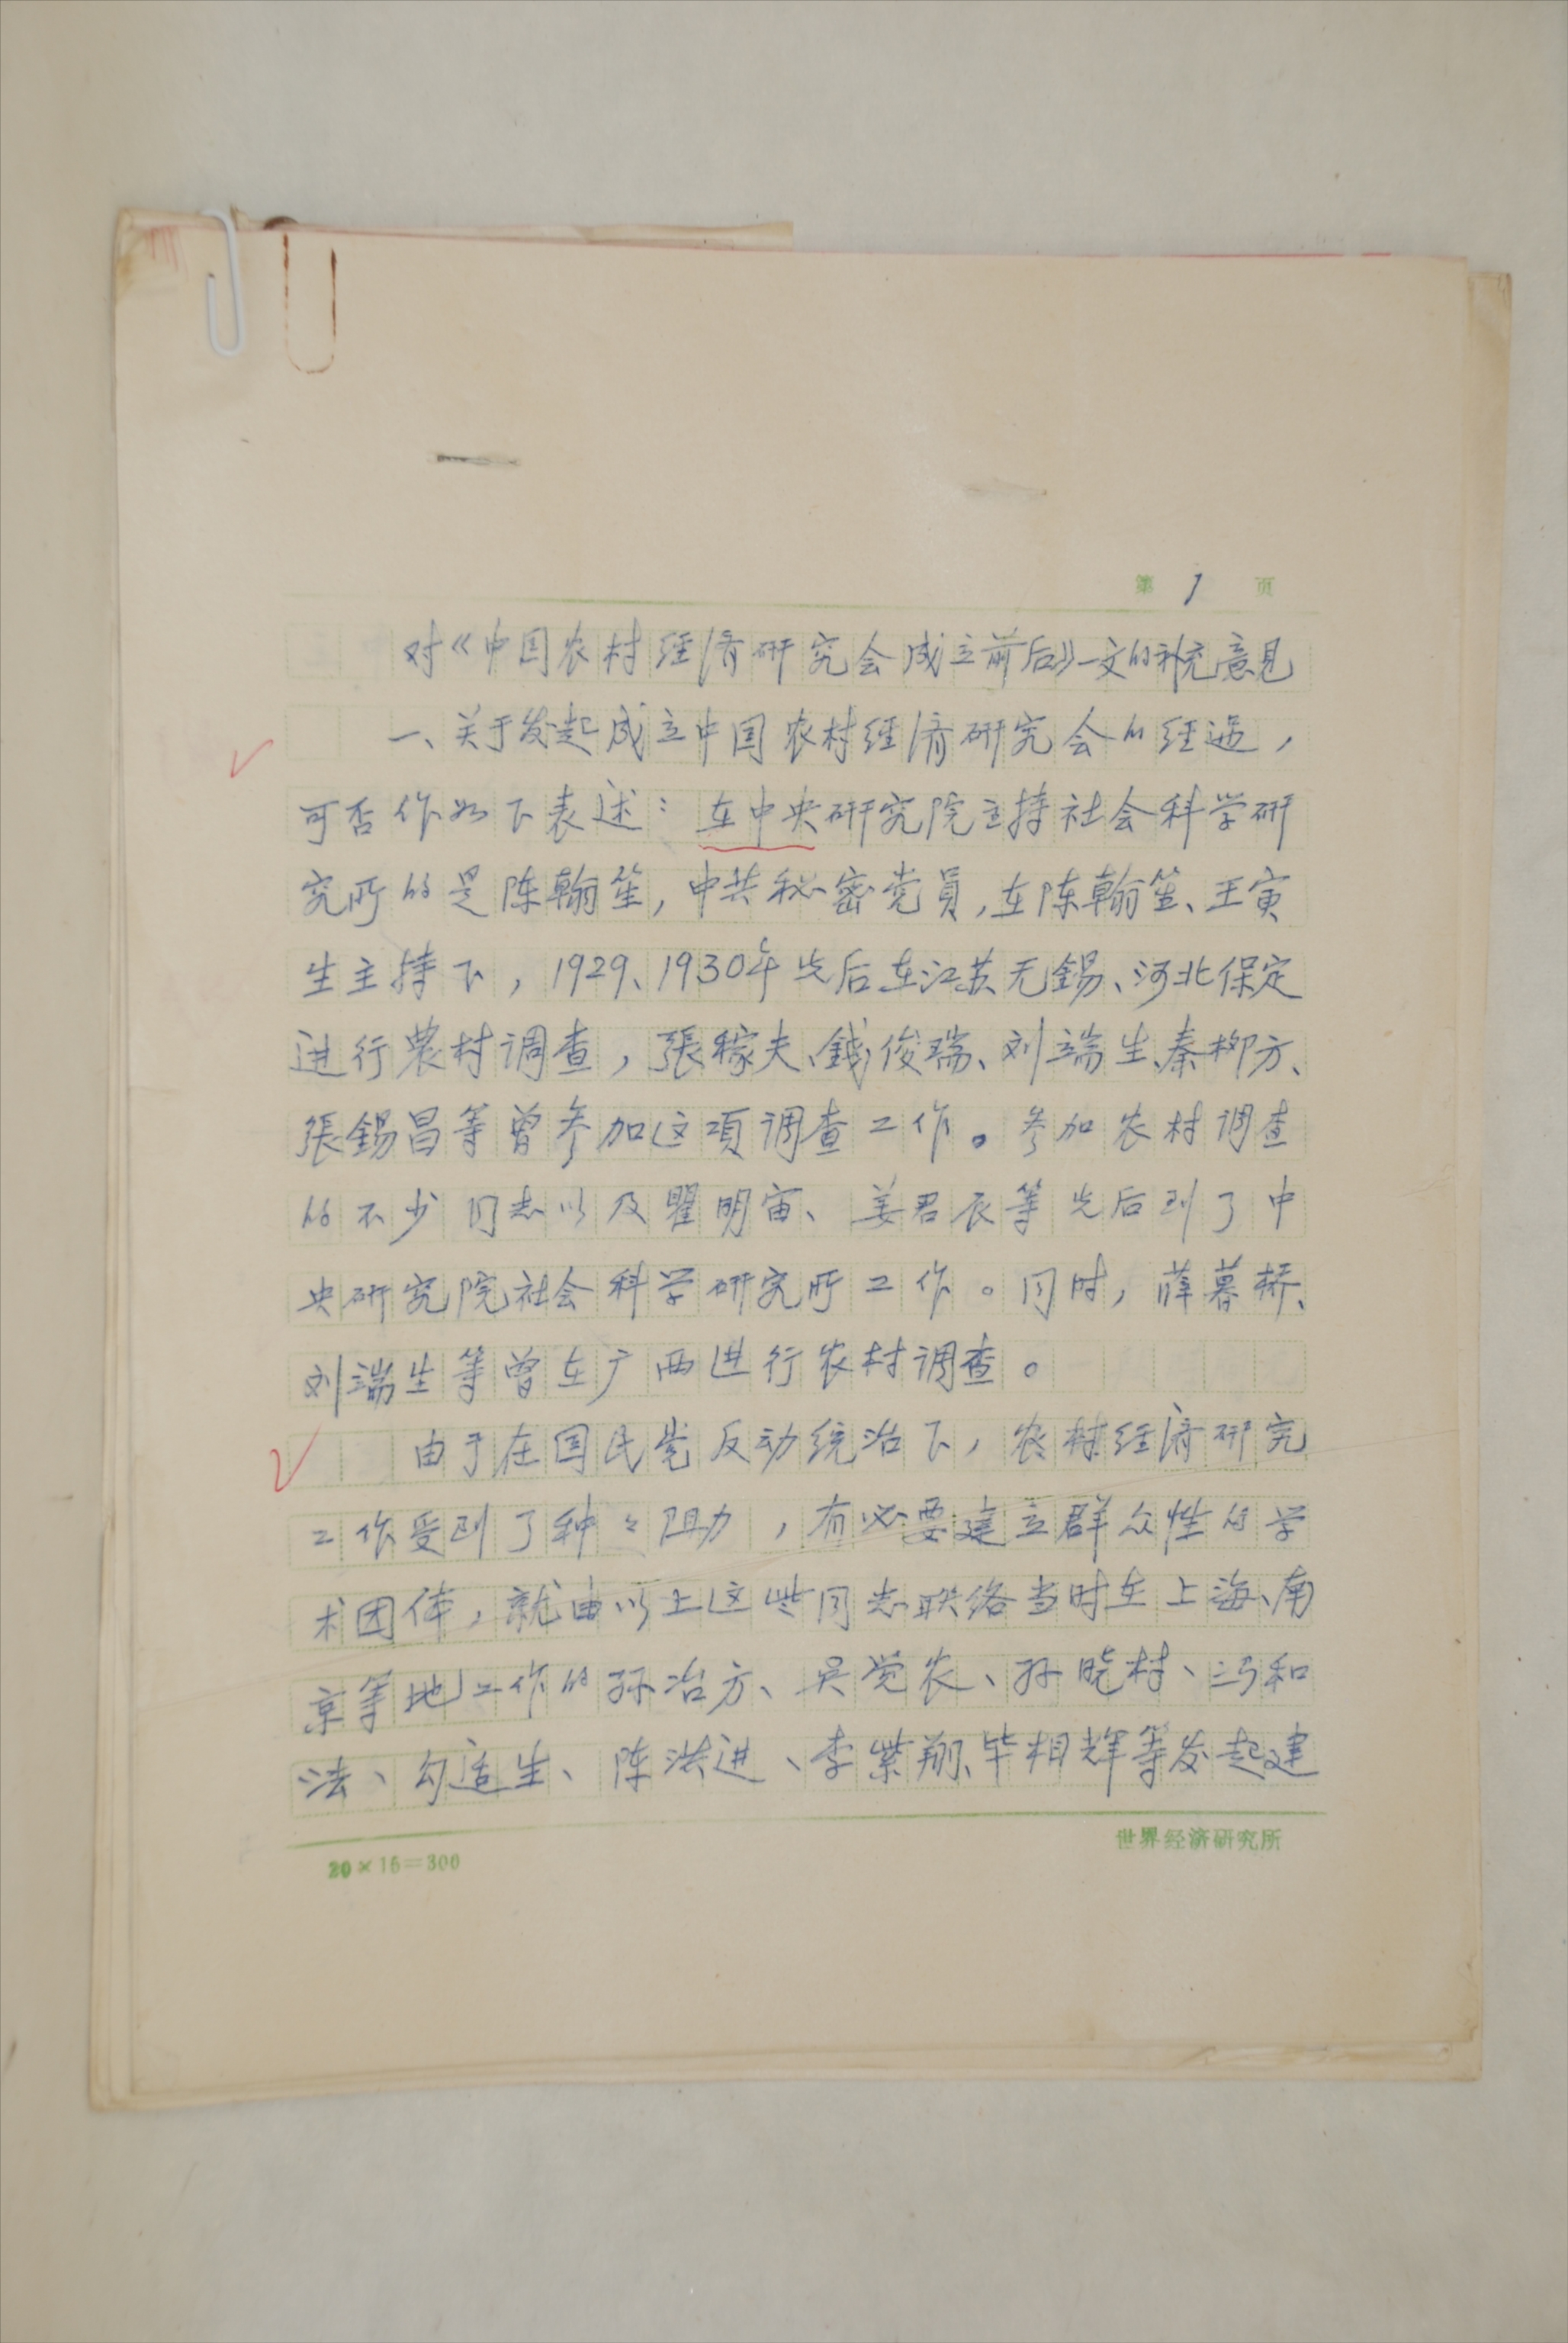 第 1 页
对《中国农村经济研究会成立前后》一文的补充意见
一、关于发起成立中国农村经济研究会的经过，
可否作如下表述：在中央研究院主持社会科学研
究所的是陈翰笙，中共秘密党員，在陈翰笙、王寅
生主持下，1929、1930年先后在江苏无錫、河北保定
进行農村调查，張稼夫、錢俊瑞、刘端生、秦柳方、
張錫昌等曾参加这项调查工作。参加农村调查
的不少同志以及瞿明宙、姜君辰等先后到了中
央研究院社会科学研究所工作。同时，薛暮桥、
刘端生等曾在广西进行农村调查。
由于在国民党反动统治下，农村经济研究
工作受到了种々阻力，有必要建立群众性的学
术团体，就由以上这些同志联络当时在上海、南
京等地工作的孙冶方、吴觉农、孙晓村、冯和
法、勾适生、陈洪进、李紫翔、毕相辉等发起建
20×15=300
世界经济研究所